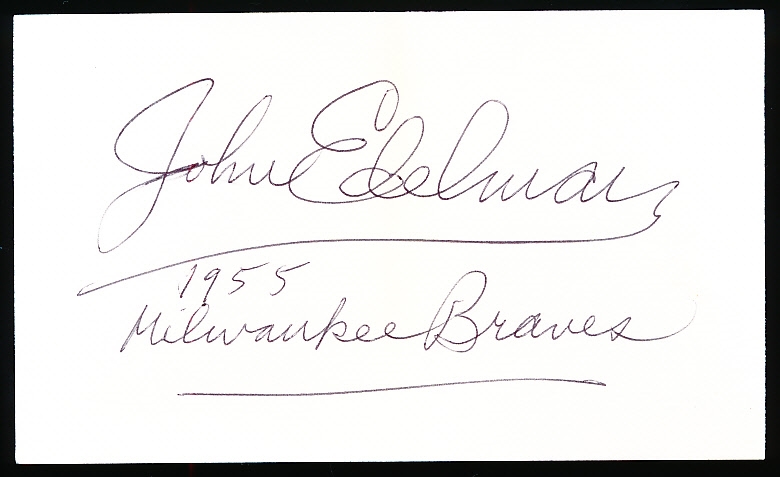 John Edelman
1955
Milwaukee Braves